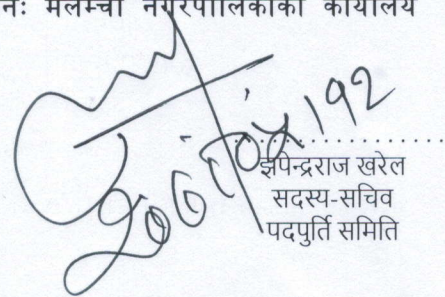 नः मेलम्ची नगरपालिकाको कार्यालय
झपेन्द्रराज खरेल
सदस्य-सचिव
पदपुर्ति समिति